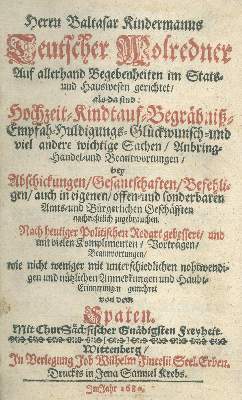 Herrn Baltasar Kindermanns
Teutscher Wolredner
Auf allerhand Begebenheiten im Stats-
und Hauswesen gerichtet/
als da sind:
Hochzeit-Kindtauf-Begräbnüß-
Empfah-Huldigungs-Glückwunsch-und
viel andere wichtige Sachen/ Anbring-
Handel-und Beantwortungen/
bey
Abschickungen/Gesantschaften/Befehli-
gen/ auch in eigenen/offen-und sonderbaren
Amts-und Bürgerlichen Geschäfften
nachrichtlich zugebrauchen.
Nach heutiger Politischen Redart gebessert/ und
mit vielen Komplimenten/ Vorträgen/
Beantwortungen/
wie nicht weniger mit unterschiedlichen nohtwendi-
gen und nützlichen Anmerkungen und Haubt-
Erinnerungen gemehret
von dem
Spaten.
Mit ChurSächsischer Gnädigsten Freyheit.
Wittenberg/
In Verlegung Job Wilhelm Fincelii Seel. Erben.
Druckts in Jena Samuel Krebs.
Im Jahr